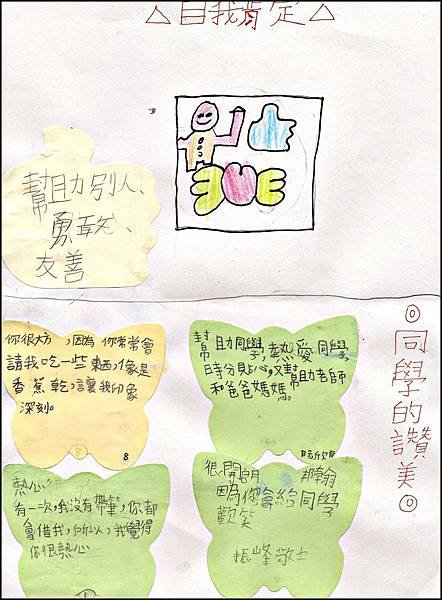 △自我肯定△
幫助別人、
勇敢、
友善
◎同學的讚美◎
你很大方,因為你常常會
請我吃一些東西,像是
香蕉乾,讓我印象
深刻。
8
幫助同學,熱愛同學,
時分貼心,又幫助老師
和爸爸媽媽。
熱心
有一次,我沒有帶筆,你都
會借我,所以,我覺得
你很熱心
1
很開朗
因為你會給同學
歡笑
振峰敬上